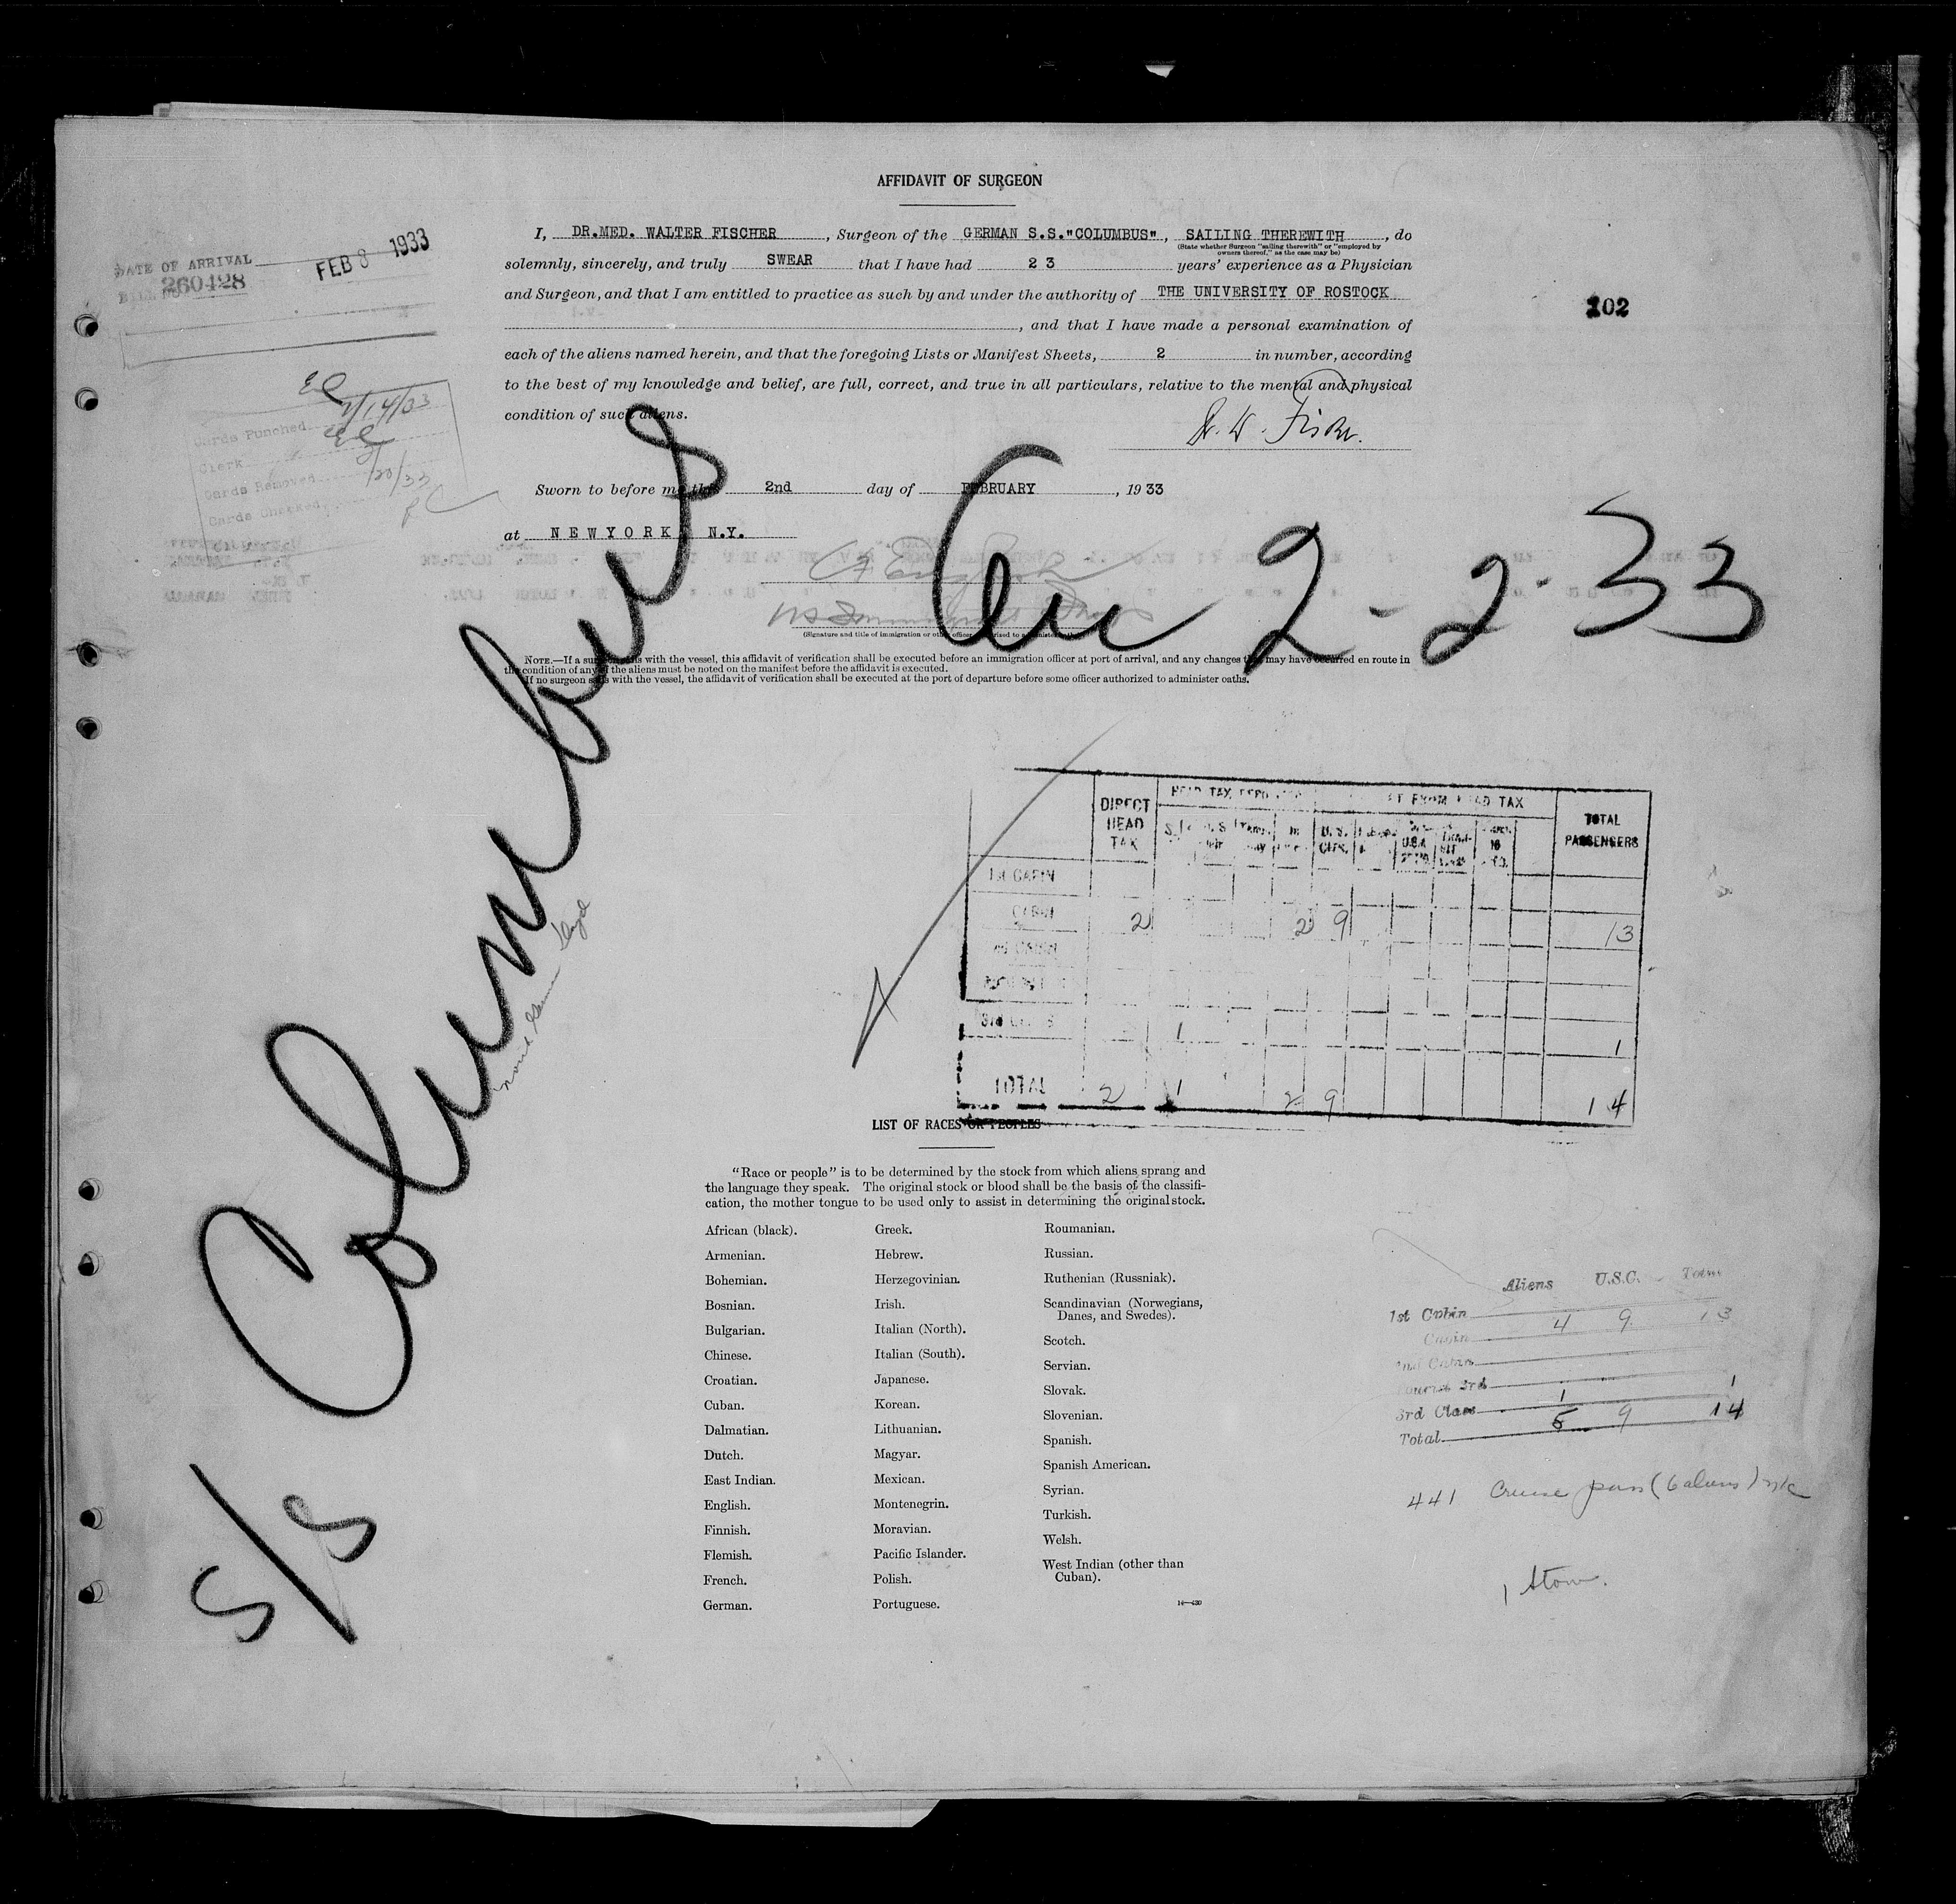 AFFIDAVIT OF SURGEON
I, DR.MED. WALTER FISCHER, Surgeon of the GERMAN S.S."COLUMBUS", SAILING THEREWITH, do
(State whether Surgeon "sailing therewith" or "employed by
owners thereof," as the case may be)
solemnly, sincerely, and truly SWEAR that I have had 2 3 years' experience as a Physician
and Surgeon, and that I am entitled to practice as such by and under the authority of THE UNIVERSITY OF ROSTOCK
, and that I have made a personal examination of
each of the aliens named herein, and that the foregoing Lists or Manifest Sheets, 2 in number, according
to the best of my knowledge and belief, are full, correct, and true in all particulars, relative to the mental and physical
condition of such aliens.
DATE OF ARRIVAL FEB 8 1933
260428
102
Cards Punched 2/14/33
Clerk
Cards Removed 3/20/33
Cards Checked
Sworn to before me this 2nd day of FEBRUARY, 1933
at NEWYORK N.Y.
(Signature and title of immigration or other officer authorized to administer oaths)
2-2-33
NOTE.—If a surgeon sails with the vessel, this affidavit of verification shall be executed before an immigration officer at port of arrival, and any changes that may have occurred en route in
the condition of any of the aliens must be noted on the manifest before the affidavit is executed.
If no surgeon sails with the vessel, the affidavit of verification shall be executed at the port of departure before some officer authorized to administer oaths.
S/S Columbus
DIRECT HEAD TAX
HEAD TAX
FROM HEAD TAX
TOTAL PASSENGERS
U.S. CITS.
1st CABIN
CABIN 2 2 9 13
2nd CABIN
3rd CLASS 1 1
TOTAL 2 1 2 9 14
LIST OF RACES OR PEOPLES
"Race or people" is to be determined by the stock from which aliens sprang and
the language they speak. The original stock or blood shall be the basis of the classifi-
cation, the mother tongue to be used only to assist in determining the original stock.
African (black).
Armenian.
Bohemian.
Bosnian.
Bulgarian.
Chinese.
Croatian.
Cuban.
Dalmatian.
Dutch.
East Indian.
English.
Finnish.
Flemish.
French.
German.
Greek.
Hebrew.
Herzegovinian.
Irish.
Italian (North).
Italian (South).
Japanese.
Korean.
Lithuanian.
Magyar.
Mexican.
Montenegrin.
Moravian.
Pacific Islander.
Polish.
Portuguese.
Roumanian.
Russian.
Ruthenian (Russniak).
Scandinavian (Norwegians,
Danes, and Swedes).
Scotch.
Servian.
Slovak.
Slovenian.
Spanish.
Spanish American.
Syrian.
Turkish.
Welsh.
West Indian (other than
Cuban).
Aliens U.S.C. Total
1st Cabin 4 9 13
Cabin
2nd Cabin
Tourist 3rd
3rd Class 1 1
Total 5 9 14
441 Cruise pass (6 aliens)
1 Stow.